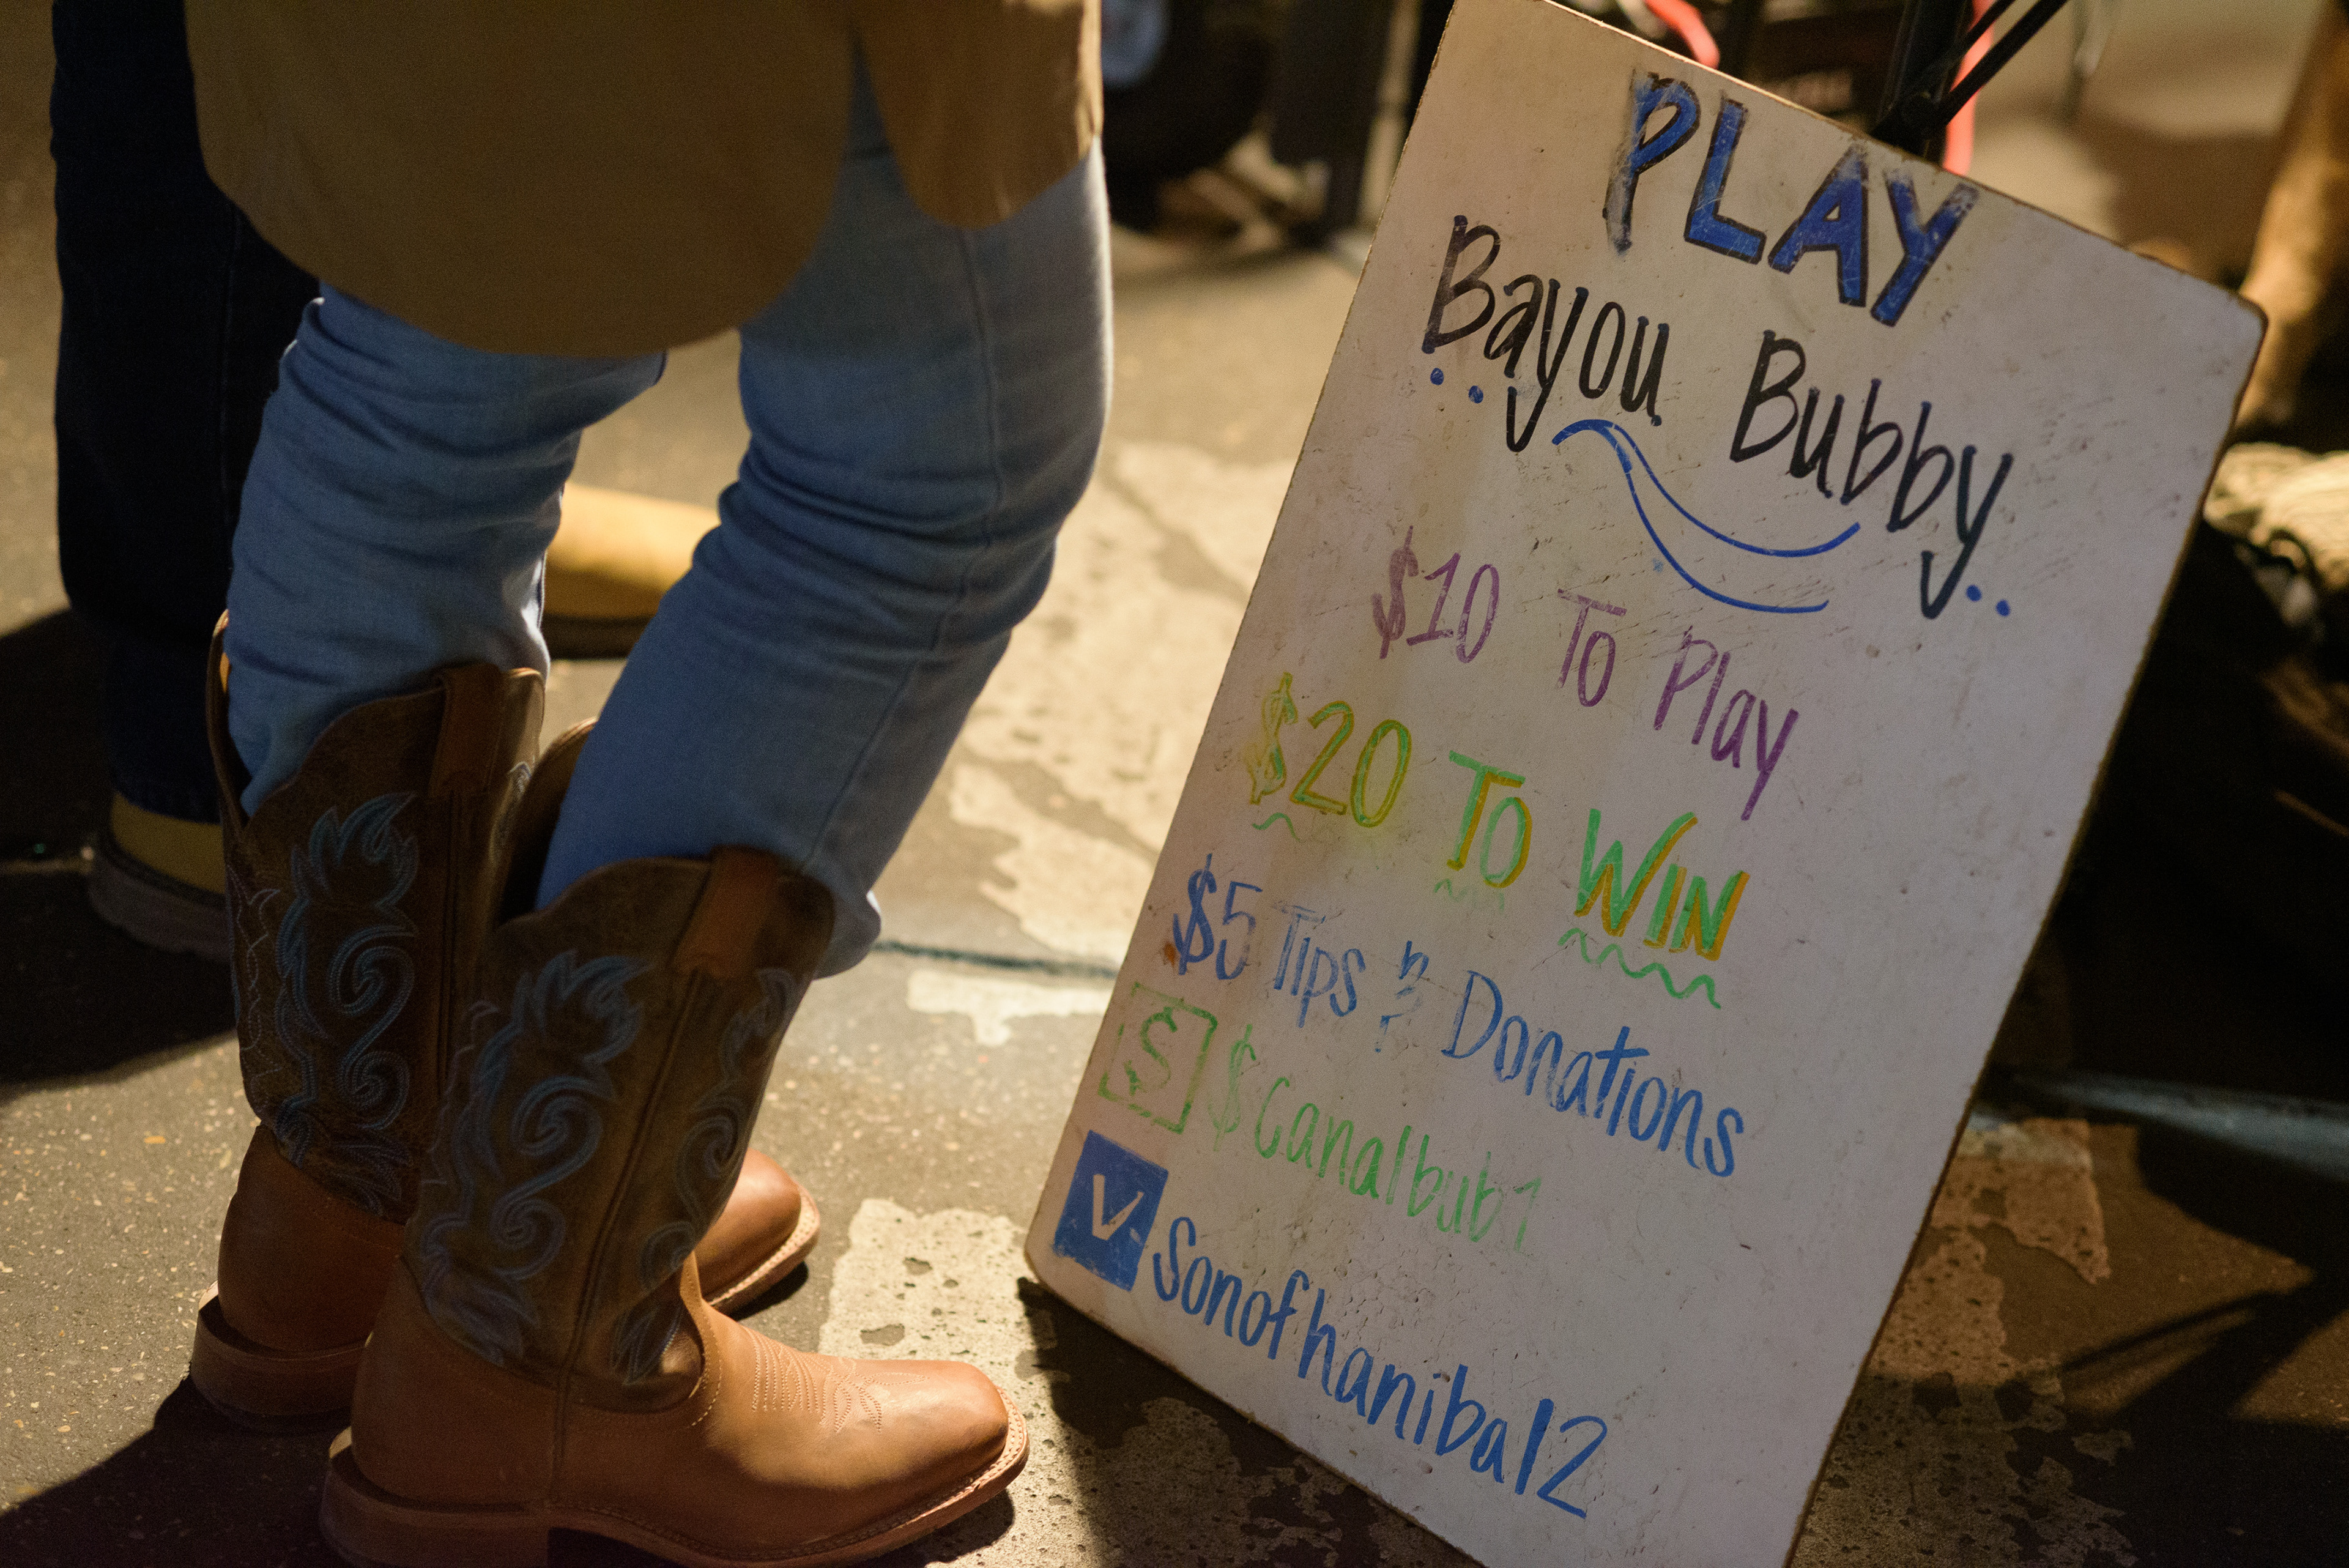 PLAY
Bayou Bubby
$10 To Play
$20 TO WIN
$5 Tips & Donations
$ $Canalbub1
V Sonofhanibal2